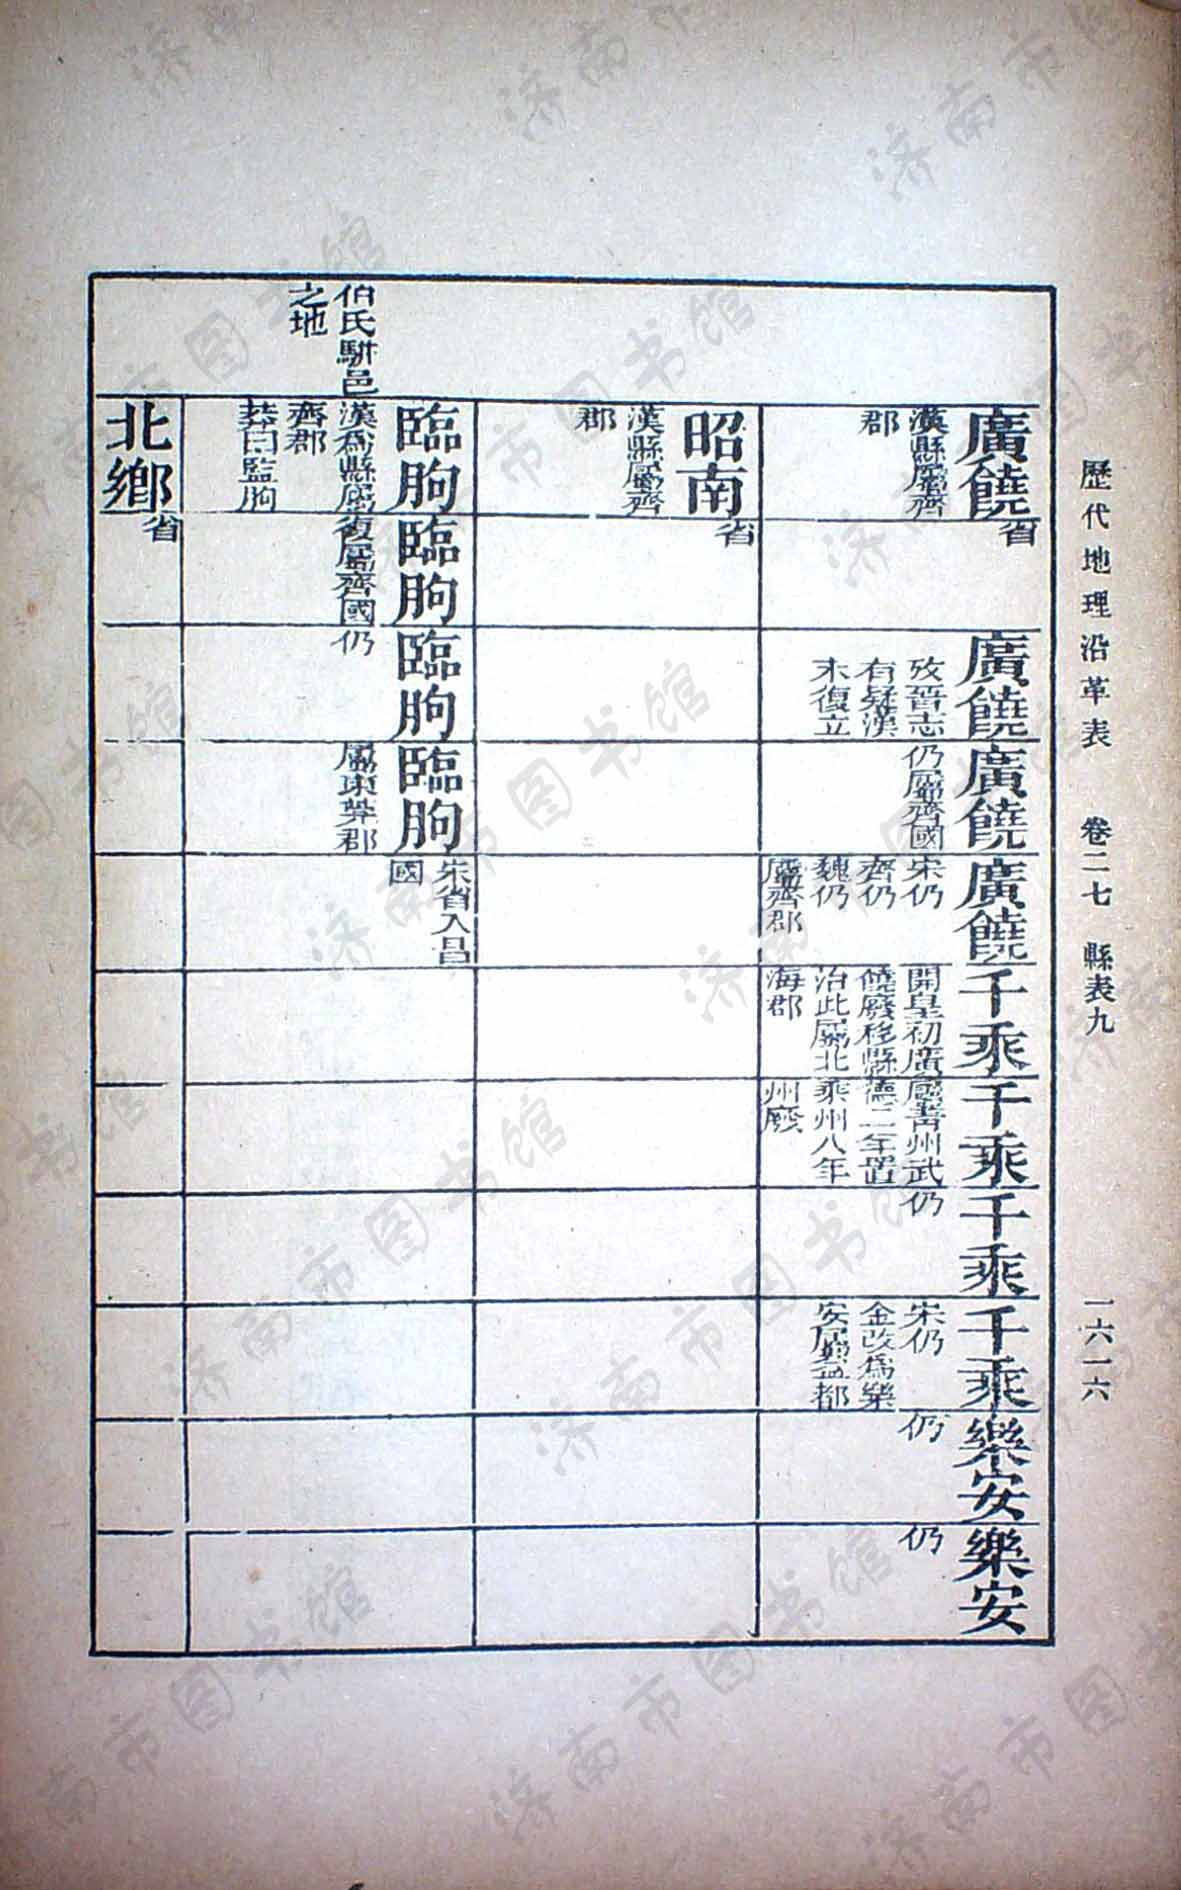 歷代地理沿革表 卷二七 縣表九 一六一六
廣饒
漢縣屬齊
郡
省
廣饒
攷晉志
有疑漢
末復立
廣饒
仍屬齊國
廣饒
宋仍
齊仍
魏仍
屬齊郡
千乘
開皇初廣
饒廢移縣
治此屬北
海郡
千乘
屬青州武
德二年置
乘州八年
州廢
千乘
仍
千乘
宋仍
金改為樂
安屬益都
樂安
仍
樂安
仍
昭南
漢縣屬齊
郡
省
伯氏駢邑
之地
臨朐
漢為縣屬
齊郡
莽曰監朐
臨朐
復屬齊國
臨朐
仍
臨朐
屬東莞郡
宋省入昌
國
北鄉
省
济南市图书馆